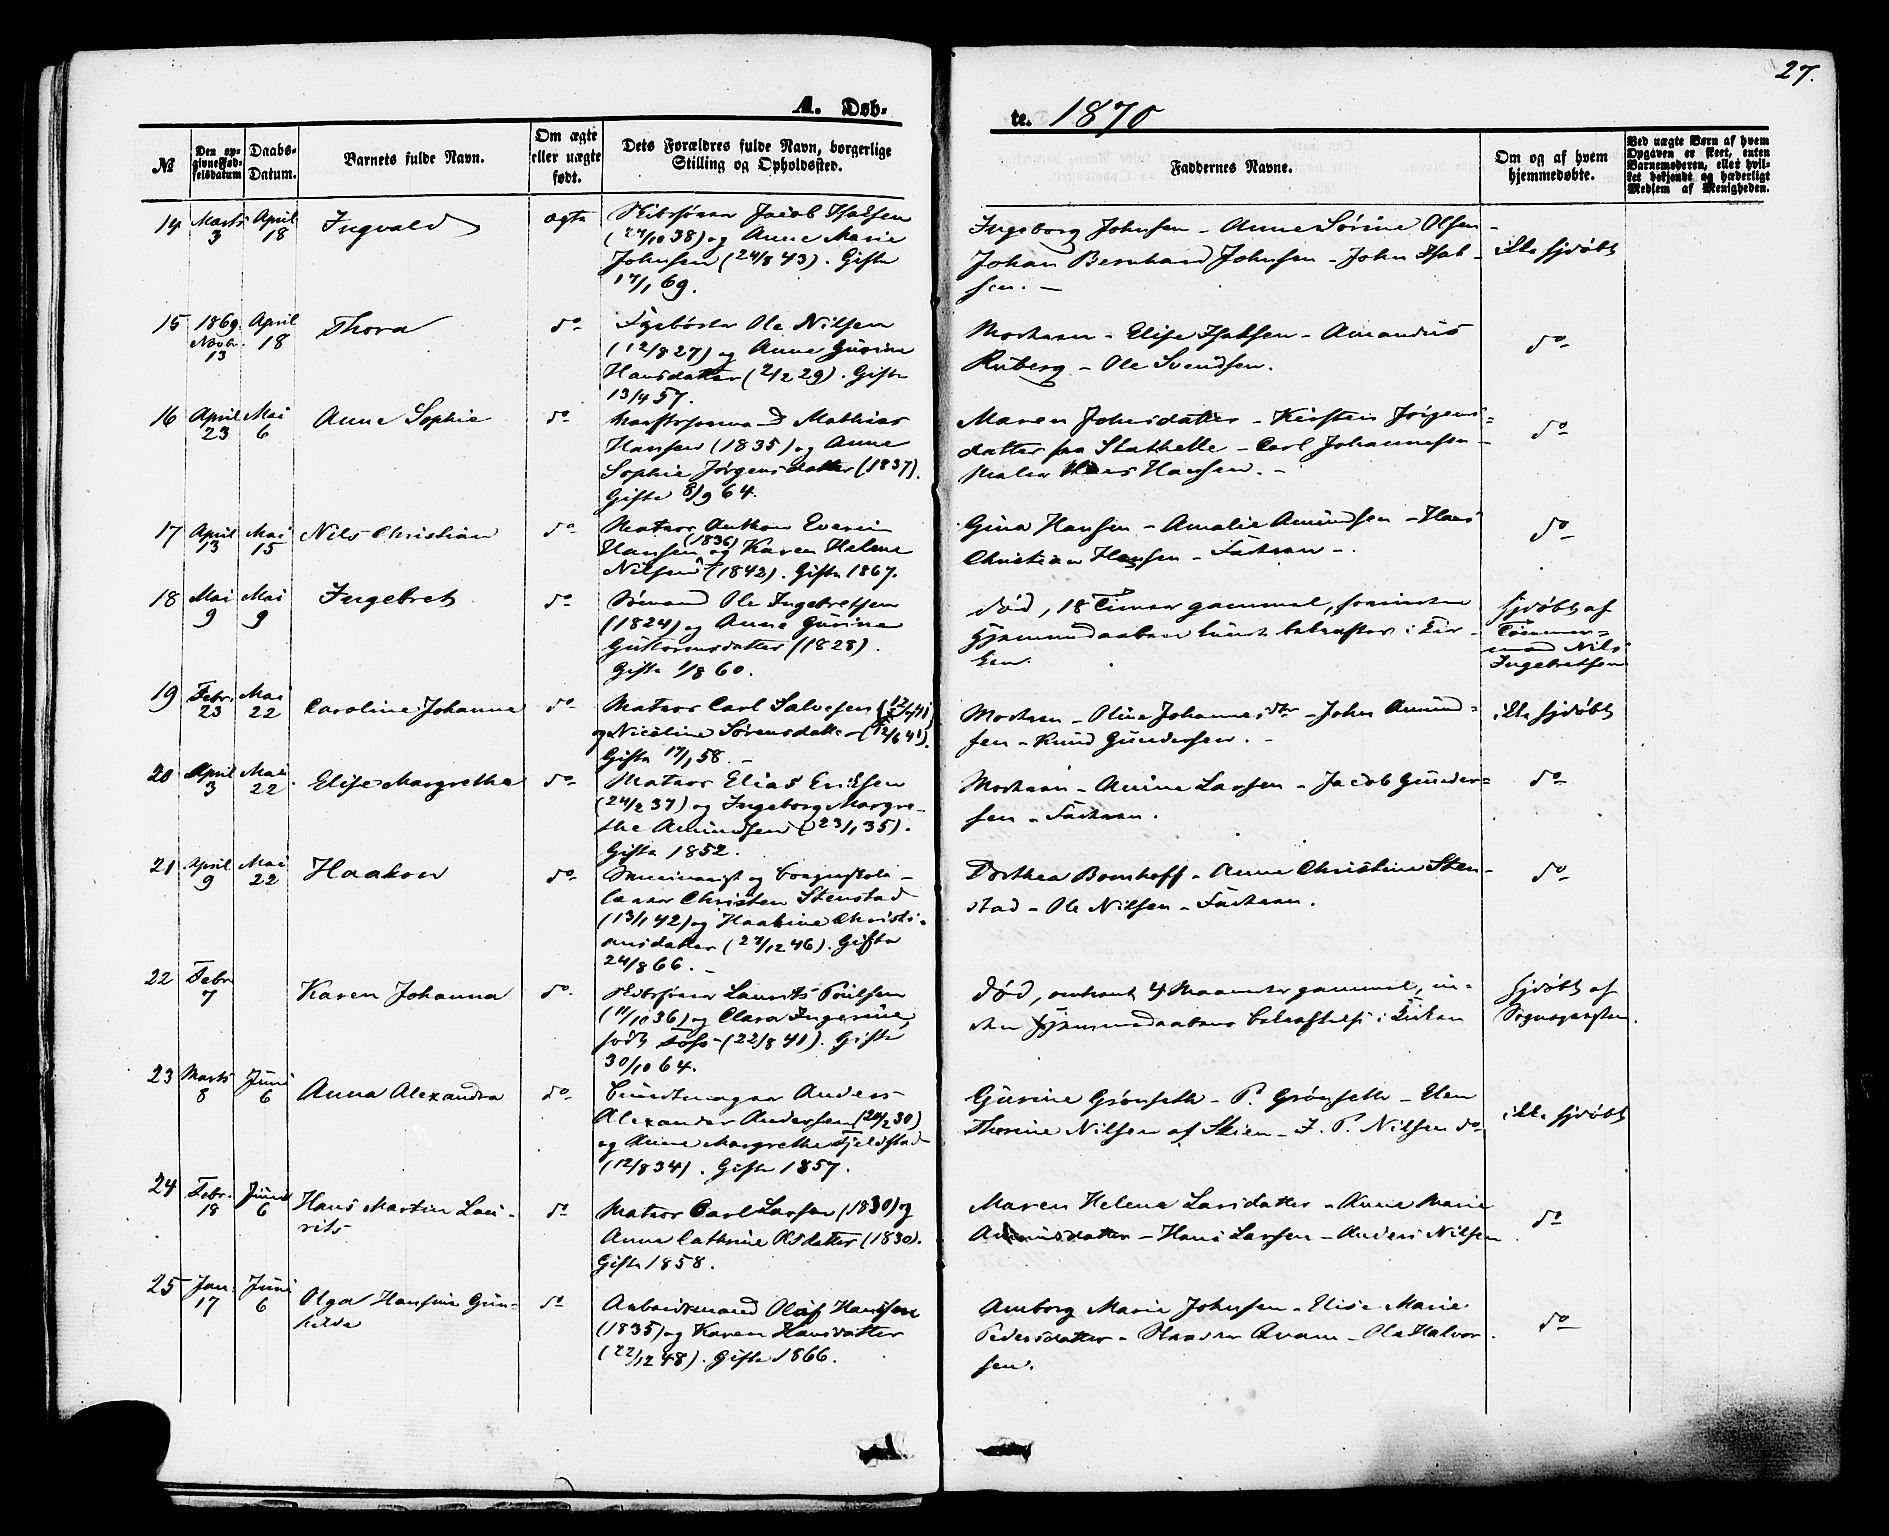 27.
A. Døb-
te. 1870
№
Den opgivne Fødselsdatum
Daabs-Datum.
Barnets fulde Navn.
Om ægte eller uægte født.
Dets Forældres fulde Navn, borgerlige Stilling og Opholdssted.
Faddernes Navne.
Om og af hvem hjemmedøbte.
Ved uægte Børn af hvem Opgaven er skeet, enten Barnemoderen, eller hvilket bekjendt og hæderligt Medlem af Menigheden.
14 Marts 3 April 18 Ingvald ægte
Skibsfører Jacob Isaksen
(24/10 38) og Anne Marie
Johnsen (24/8 43). Gifte
17/1 69.
Ingeborg Johnsen - Anne Sørine Olsen -
Johan Bernhard Johnsen - John Isak-
sen. -
ikke hjdøbt
15 1869 Novb. 13 April 18 Thora do
Ole Nilsen
(12/8 27) og Anne Gurine
Hansdatter (2/2 29). Gifte
13/4 57.
Modren - Elise Isaksen - Amandus
Ruberg - Ole Svendsen.
do
16 April 23 Mai 6 Anne Sophie do
Mathias
Hansen (1835) og Anne
Sophie Jørgensdatter (1837).
Gifte 8/9 64.
Maren Johnsdatter - Kirsten Jørgens-
datter fra Stathelle - Carl Johannesen -
Maler Hans Hansen. -
do
17 April 13 Mai 15 Nils Christian do
Matros Anthon Everin
Hansen (1836) og Karen Helene
Nilsen (1842). Gifte 1867.
Gina Hansen - Amalie Amundsen - Hans
Christian Hansen - Fadren -.
do
18 Mai 9 Mai 9 Ingebret do
Sømand Ole Ingebretsen
(1824) og Anne Gurine
Guttormsdatter (1828).
Gifte 1/8 60.
død, 18 Timer gammel, forinden
Hjemmedaaben kunde bekræftes i Kir-
ken.
hjdøbt af
Tømmer-
mand Nils
Ingebretsen
19 Febr. 23 Mai 22 Caroline Johanne do
Matros Carl Salvesen
og Nicoline Sørensdatter (12/6 41).
Gifte 17/1 58. -
Modren - Oline Johannesdtr - John Amund-
sen - Knud Gundersen. -
ikke hjdøbt
20 April 3 Mai 22. Elise Margrethe do
Matros Elias Eriksen
(24/2 37) og Ingeborg Margre-
the Amundsen (23/1 35).
Gifte 1852.
Modren - Anine Larsen - Jacob Gunder-
sen - Fadren.
do
21 April 9 Mai 22 Haakon do
Seminarist og Borgerskole-
lærer Christen Stenstad
(13/1 42) og Haakine Christi-
ansdatter (27/12 46). Gifte
24/8 66. -
Dorthea Bomhoff - Anne Christine Sten-
stad - Ole Nilsen - Fadren.
do
22 Febr 7 Karen Johanna do
Skibsfører Laurits Poulsen
(11/10 36) og Clara Ingerine,
født Foss - (22/8 41). Gifte
30/10 64.
død, omtrent 4 Maaneder gammel, in-
den Hjemmedaabens Bekræftelse i Kirken
hjdøbt af
Sognepresten.
23 Marts 8 Juni 6 Anna Alexandra do
Buntmager Anders
Alexander Andersen (24/2 30)
og Anne Margrethe Fjeldstad
(12/8 34). Gifte 1857.
Gurine Grønseth - P. Grønseth - Elen
Thorine Nilsen af Skien - J. P. Nilsen do
ikke hjdøbt
24 Febr. 18 Juni 6 Hans Martin Lau-
rits do
Matros Carl Larsen (1830) og
Anne Cathrine Olsdatter (1830).
Gifte 1858.
Maren Helene Larsdatter - Anne Marie
- Hans Larsen - Anders Nilsen
do
25 Jan. 17 Juni 6 Olga Hansine Gun-
hilde do
Arbeidsmand Olaf Hansen
(1835) og Karen Hansdatter
(22/12 48). Gifte 1866.
Amborg Marie Johnsen - Elise Marie
Pedersdatter - Qvam - Ole Halvor-
sen.
do